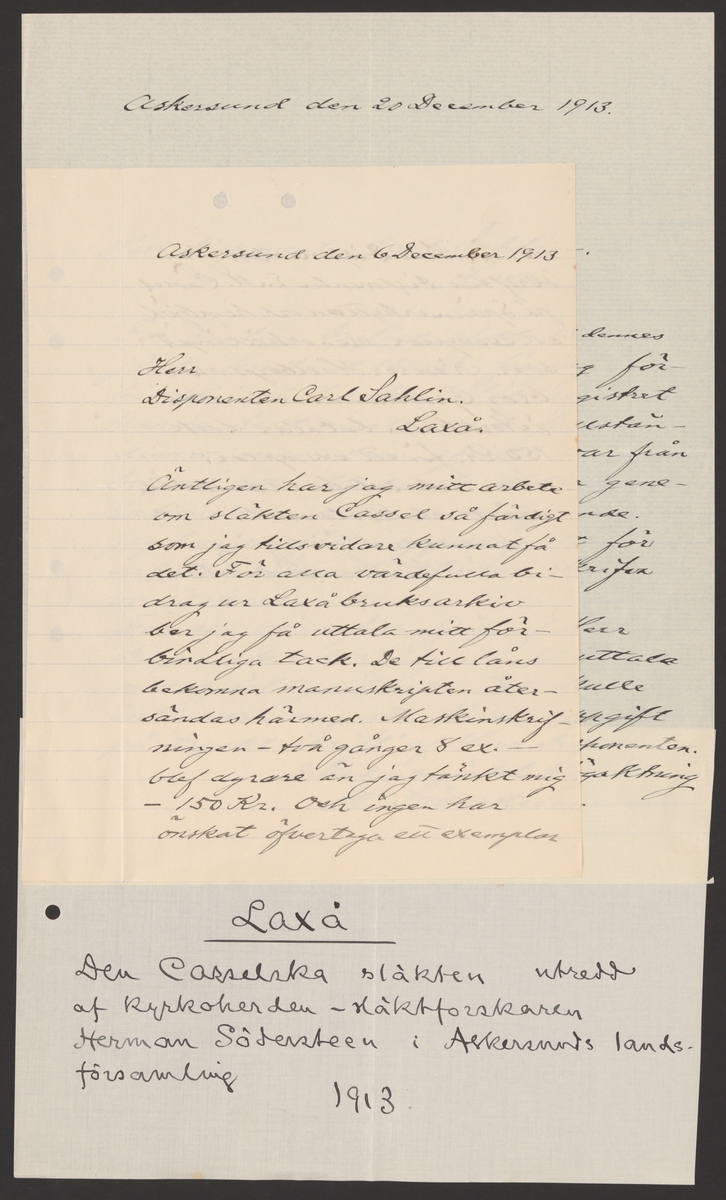 Askersund den 20 December 1913.
Askersund den 6 December 1913
Herr
Disponenten Carl Sahlin.
Laxå.
Äntligen har jag mitt arbete
om släkten Cassel så färdigt
som jag tillsvidare kunnat få
det. För alla värdefulla bi-
drag ur Laxå bruksarkiv
ber jag få uttala mitt för-
bindliga tack. De till låns
bekomna manuskripten åter-
sändas härmed. Maskinskrif-
ningen – två gånger 8 ex. –
blef dyrare än jag tänkt mig
– 150 Kr. Och ingen har
önskat öfvertaga ett exemplar
dennes
för-
gistret
var från
gene-
nde.
för
krifva
Herr
uttala
kulle
ppgift
ponenten.
gaktning
Laxå
Den Casselska släkten utredd
af kyrkoherden – släktforskaren
Herman Södersteen i Askersunds lands-
församling
1913